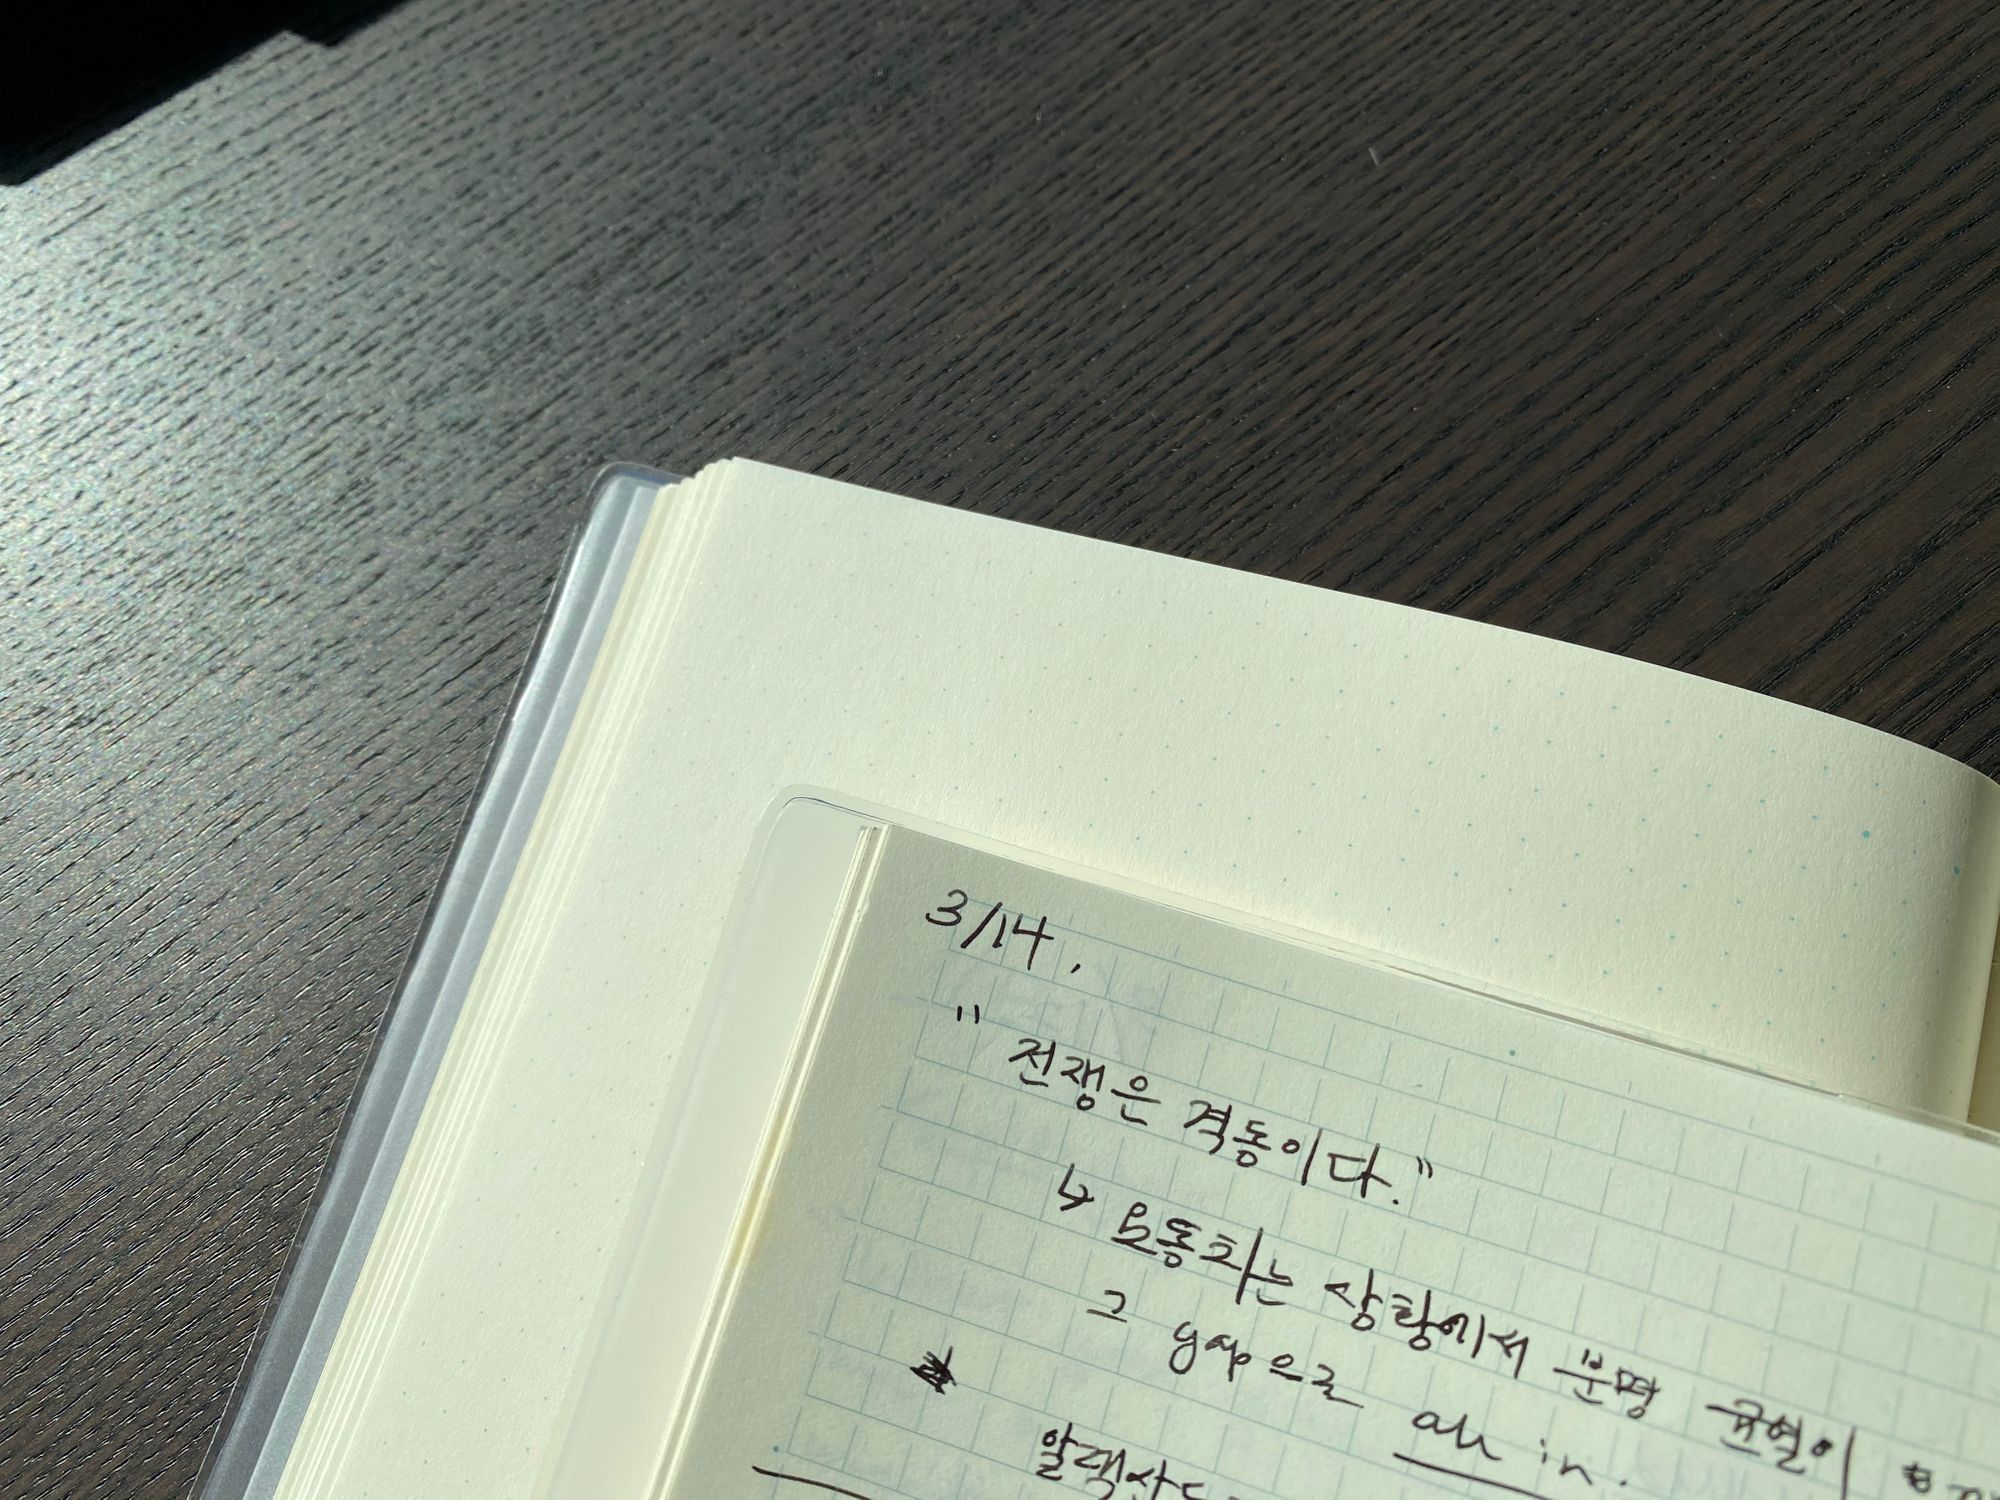 3/14.
"전쟁은 격동이다."
↳ 요동치는 상황에서 분명 균열이
그 gap으로 all in.
알렉산드